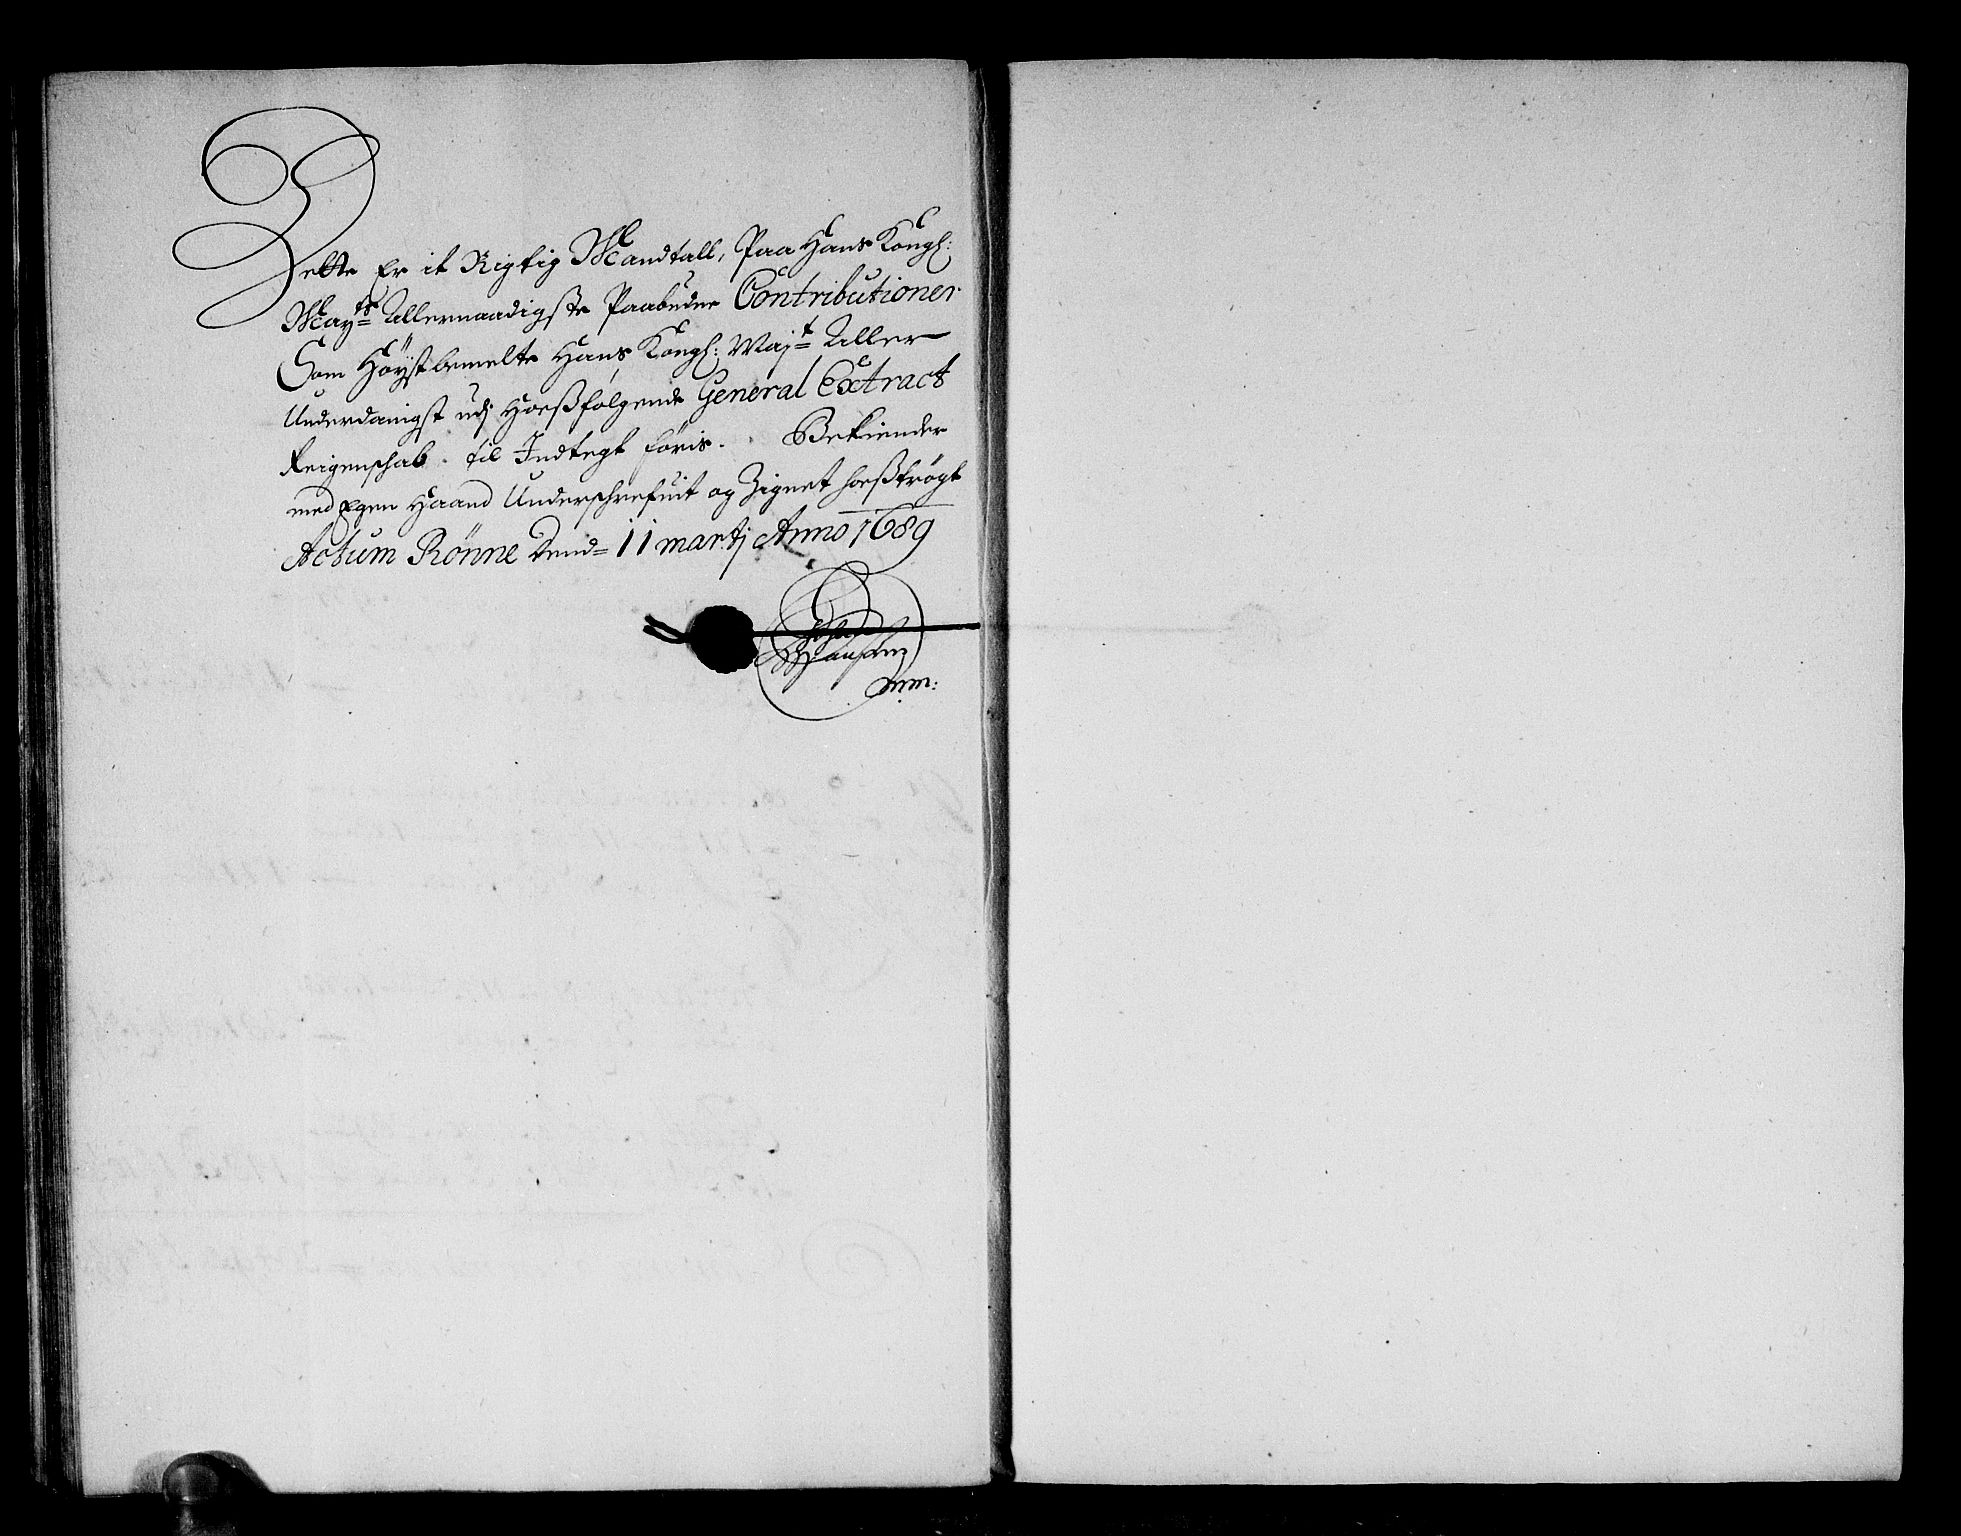 Dette Er it Rigtig Mandtall, Paa Hans Kongl:
Mayts Allernaadigste Paabudne Contributioner
Som Høystbemelte Hans Kongl: Majt Aller
Underdanigst udj Hoesfølgende General Extract
Reigenschab til Indtegt føris. Bekiender
med Egen Haand Underschrefuit og Zignet hoestrøgt
Actum Rønne Dend 11 martj Anno 1689
Hansen
mm: